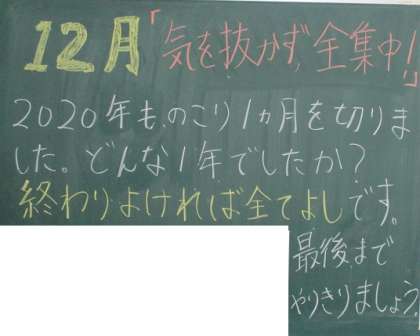 12月「気を抜かず、全集中!」
2020年も、のこり1ヵ月を切りま
した。どんな1年でしたか?
終わりよければ全てよしです。
最後まで
やりきりましょう